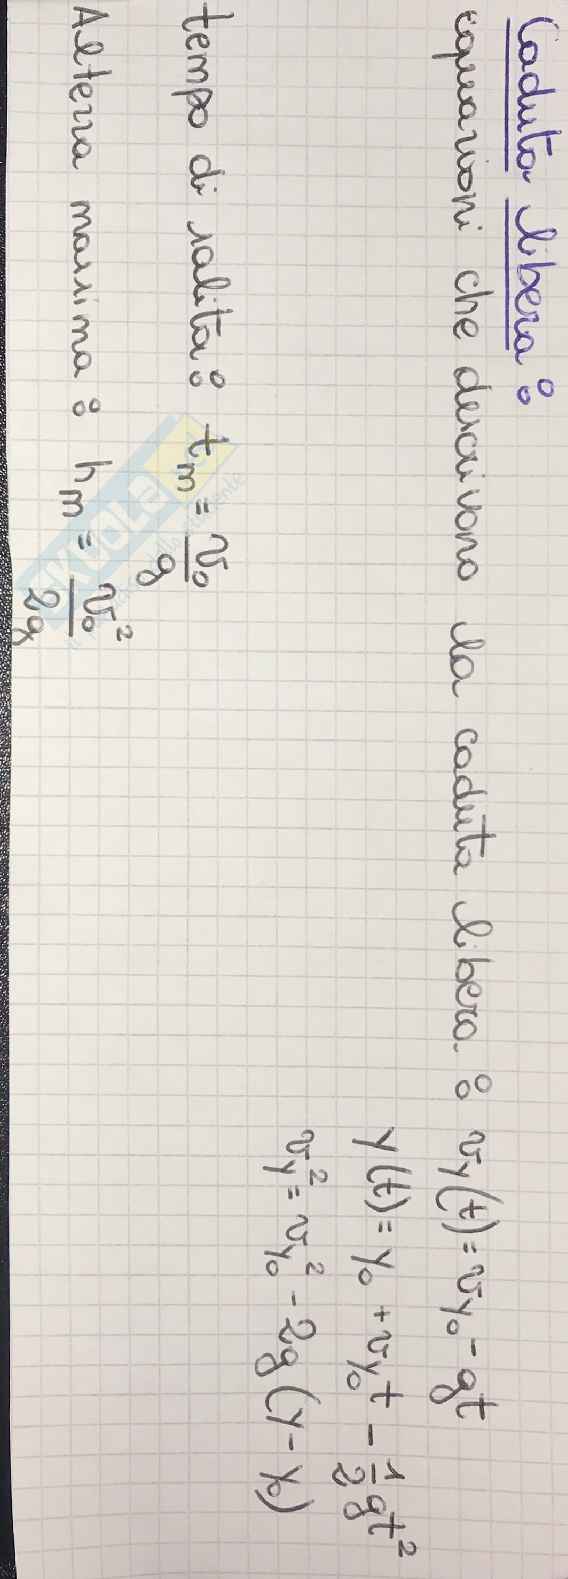 Caduta libera:
equazioni che descrivono la caduta libera: v_y(t) = v_y₀ - gt
y(t) = y₀ + v_y₀ t - 1/2 gt²
v_y² = v_y₀² - 2g(y - y₀)
tempo di salita: t_m = v₀/g
Altezza massima: h_m = v₀²/2g
SKUOLA